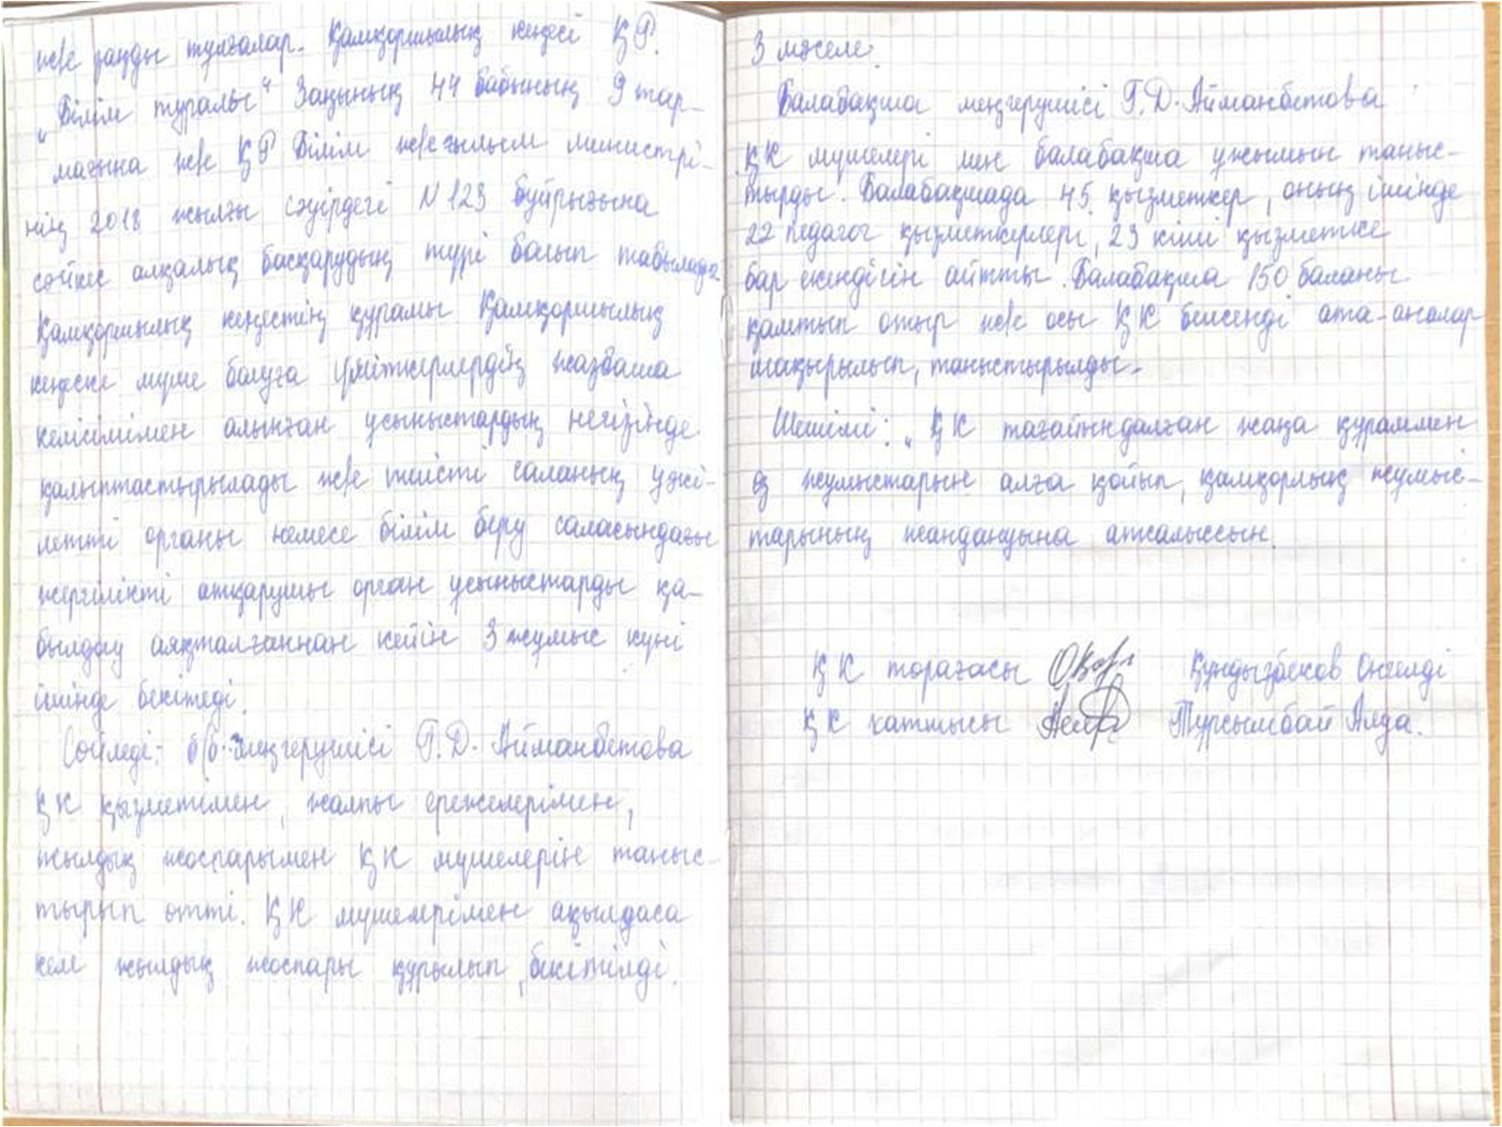 ж/е заңды тұлғалар. Қамқоршылық кеңесі ҚР.
„Білім туралы“ Заңының 44 бабының 9 тар-
мағына ж/е ҚР Білім ж/е ғылым министрі-
нің 2018 жылғы сәуірдегі N 123 бұйрығына
сәйкес алқалық басқарудың түрі болып табылады
Қамқоршылық кеңестің құрамы Қамқоршылық
кеңеске мүше болуға үміткерлердің жазбаша
келісімімен алынған ұсыныстардың негізінде
қалыптастырылады ж/е тиісті саланың уәкі-
летті органы немесе білім беру саласындағы
жергілікті атқарушы орган ұсыныстарды қа-
былдау аяқталғаннан кейін 3 жұмыс күні
ішінде бекітеді.
Сөйледі: б/б меңгерушісі Г.Д. Айманбетова
ҚК қызметімен, жалпы ережелерімен,
жылдық жоспарымен ҚК мүшелерін таныс-
тырып өтті. ҚК мүшелерімен ақылдаса
келе жылдық жоспары құрылып, бекітілді.
3 мәселе.
Балабақша меңгерушісі Г.Д. Айманбетова
ҚК мүшелері мен балабақша ұжымын таныс-
тырды. Балабақшада 45 қызметкер, оның ішінде
22 педагог қызметкерлері, 23 кіші қызметкер
бар екендігін айтты. Балабақша 150 баланы
қамтып отыр ж/е осы ҚК белсенді ата-аналар
шақырылып, таныстырылды.
Шешімі: „ҚК тағайындалған жаңа құраммен
өз жұмыстарын алға қойып, қамқорлық жұмыс-
тарының жандануына атсалыссын.
ҚК торағасы Құндызбеков Онгелді
ҚК хатшысы Тұрсымбай Аяда.